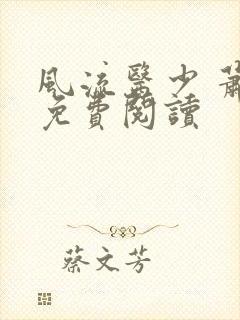 風流醫少 蕭
免費閱讀
蔡文芳